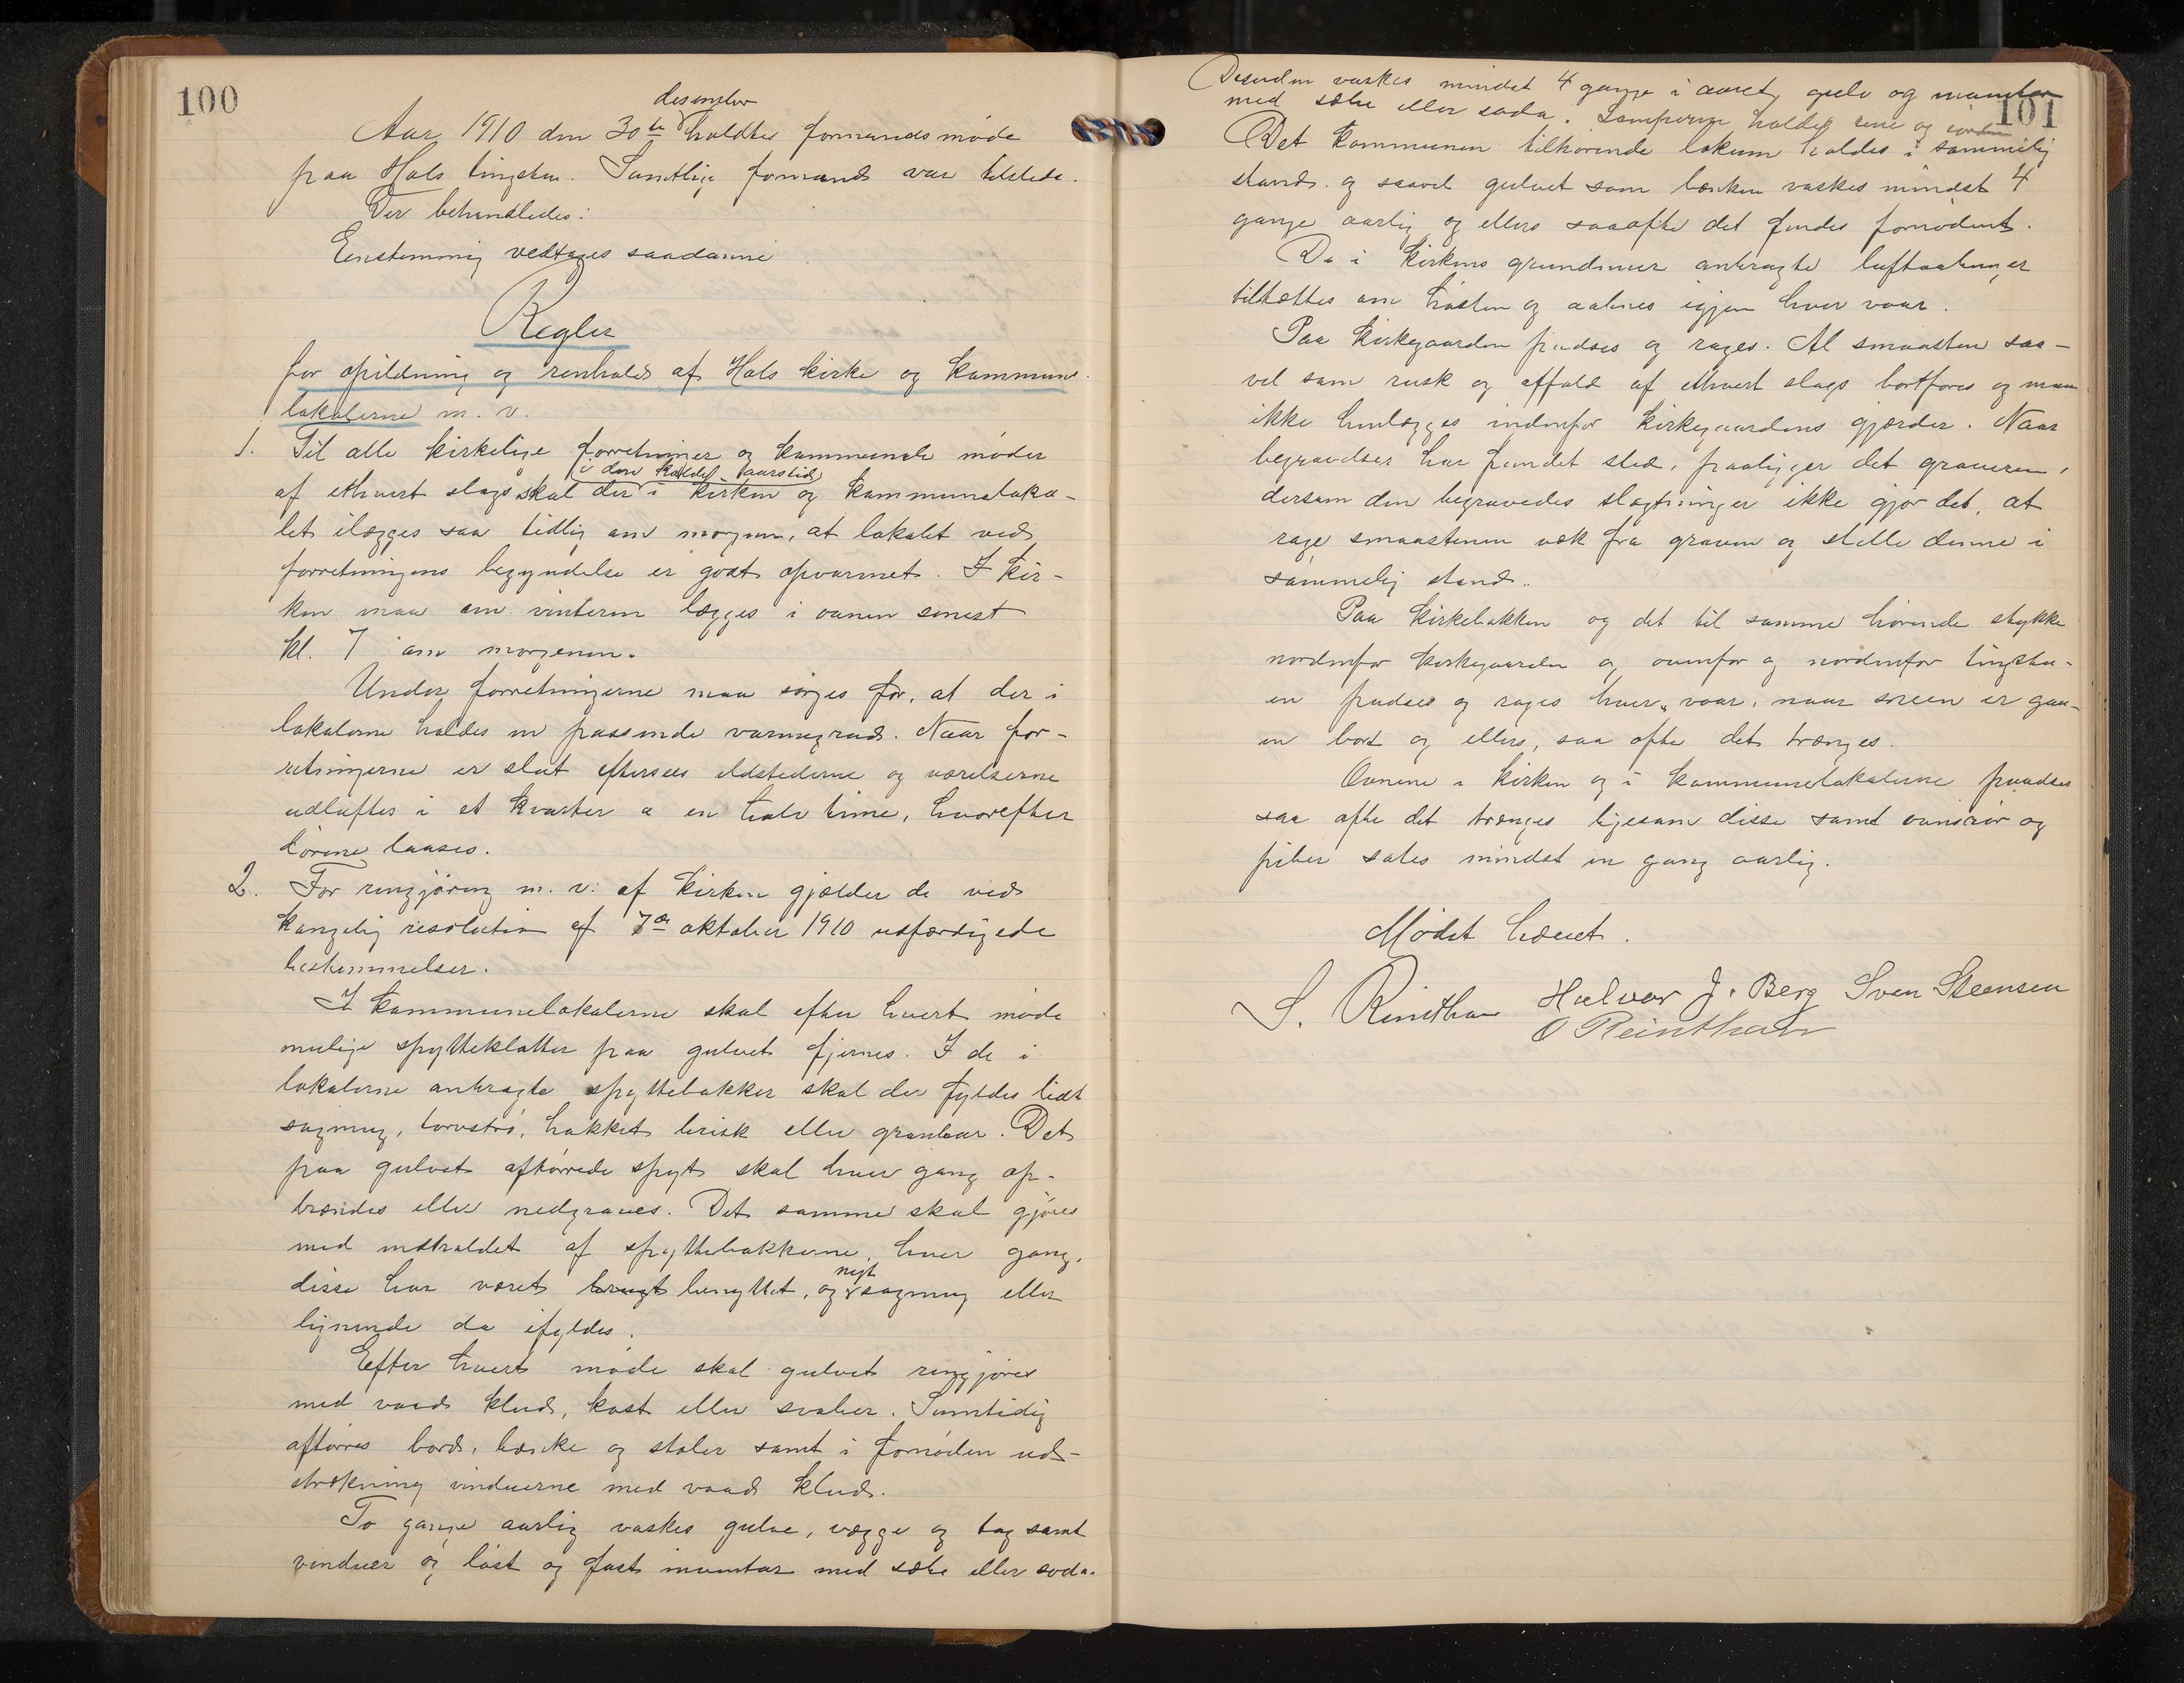 100
desember
Aar 1910 den 30te holdtes formandsmøde
paa Hols tingstu. Samtlige formænd var tilstede.
Der behandledes:
Enstemmig vedtages saadanne
Regler
for opildning og renhold af Hols kirke og kommune-
lokalerne m. v.
1. Til alle kirkelige forretninger og kommunale møder
i den kolde aarstid
af ethvert slags skal der i kirken og kommuneloka-
let ilægges saa tidlig om morgenen, at lokalet ved
forretningens begyndelse er godt opvarmet. I kir-
ken maa om vinteren lægges i ovnen senest
kl. 7 om morgenen.
Under forretningerne maa sørges for, at der i
lokalerne holdes en passende varmegrad. Naar for-
retningerne er slut eftersees ildstederne og værelserne
udluftes i et kvarter a en halv time, hvorefter
dørene laases.
2. For rengjøring m. v. af kirken gjælder de ved
kongelig resolution af 7de oktober 1910 udfærdigede
bestemmelser.
I kommunelokalerne skal efter hvert møde
mulige spytteklatter paa gulvet fjernes. I de i
lokalerne anbragte spyttebakker skal der fyldes lidt
sagmug, torvstrø, hakket brisk eller granbar. Det
paa gulvet aftørrede spyt skal hver gang op-
brændes eller nedgraves. Det samme skal gjøres
med indholdet af spyttebakkerne, hver gang,
nyt
disse har været brugt benyttet, og sagmug eller
lignende da ifyldes.
Efter hvert møde skal gulvet rengjøres
med vaad klud, kost eller svaber. Samtidig
aftørres bord, bænke og stoler samt i fornøden ud-
strækning vinduerne med vaad klud.
To gange aarlig vaskes gulve, vægge og tag samt
vinduer og løst og fast inventar med sæbe eller soda.
101
Desuden vaskes mindst 4 gange i aaret gulv og inventar
med sæbe eller soda. Lamperne holdes rene og i orden
Det kommunen tilhørende lokum holdes i sømmelig
stand og saavel gulvet som bænken vaskes mindst 4
gange aarlig og ellers saaofte det findes fornødent.
De i kirkens grundmur anbragte luftaabninger
tiltættes om høsten og aabnes igjen hver vaar.
Paa kirkegaarden pudses og rages. Al smaasten saa-
vel som rusk og affald af ethvert slags bortføres og maa
ikke henlægges indenfor kirkegaardens gjærder. Naar
begravelser har fundet sted, paaligger det graveren,
dersom den begravedes slægtninger ikke gjør det, at
rage smaastenen væk fra graven og stelle denne i
sømmelig stand.
Paa kirkebakken og det til samme hørende stykke
nordenfor kirkegaarden og ovenfor og nordenfor tingstu-
en pudses og rages hver vaar, naar sneen er gaa-
en bort og ellers, saa ofte det trænges.
Ovnene i kirken og i kommunelokalerne pudses
saa ofte det trænges ligesom disse samt ovnsrør og
piber sotes mindst en gang aarlig.
Mødet hævet.
S. Reinthon Halvor J. Berg Sven Steensen
O Reinthon